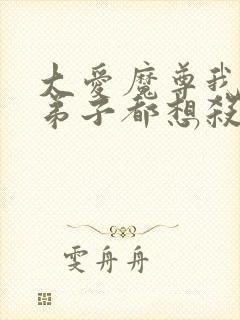 大爱魔尊我
弟子都想殺
雯舟舟